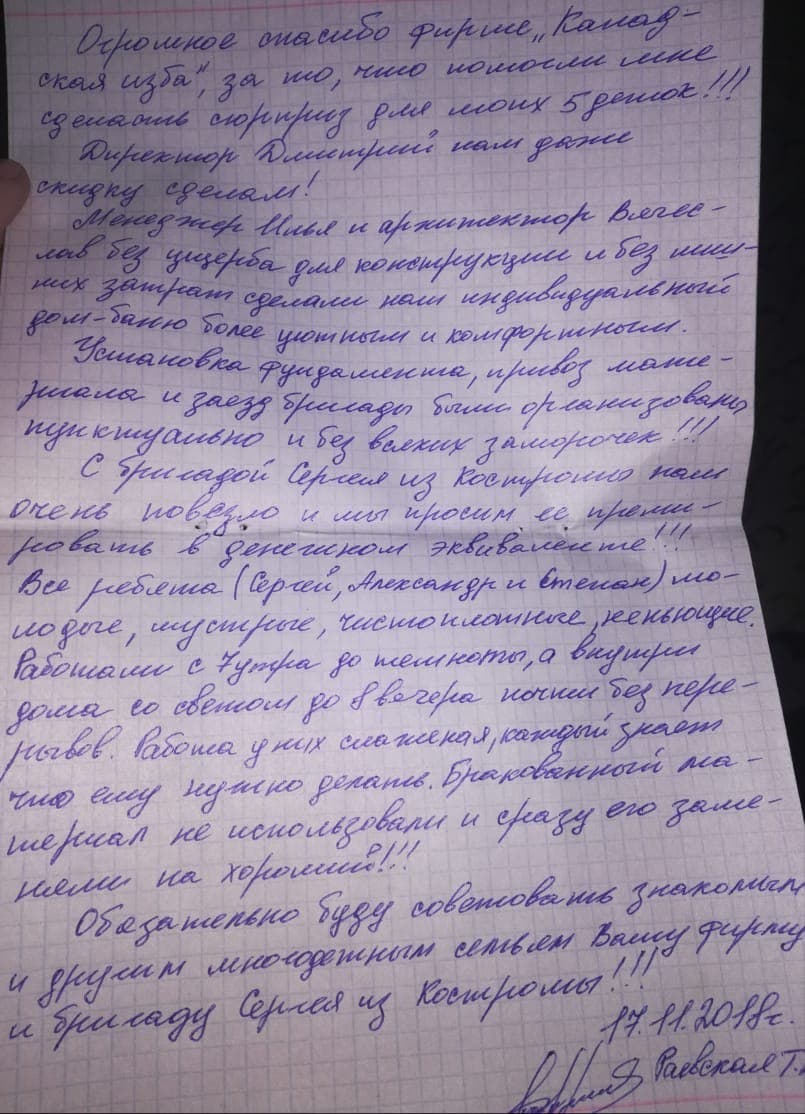 Огромное спасибо фирме „Канад-
ская изба", за то, что помогли мне
сделать сюрприз для моих 5 деток!!!
Директор Дмитрий нам даже
скидку сделал!
Менеджер Илья и архитектор Вячес-
лав без ущерба для конструкции и без лиш-
них затрат сделали наш индивидуальный
дом-баню более уютным и комфортным.
Установка фундамента, привоз мате-
риала и заезд бригады были организованы
пунктуально и без всяких заморочек!!!
С бригадой Сергея из Костромы нам
очень повезло и мы просим ее преми-
ровать в денежном эквиваленте!!!
Все ребята (Сергей, Александр и Степан) мо-
лодые, шустрые, чистоплотные, непьющие.
Работали с 7 утра до темноты, а внутри
дома со светом до 8 вечера почти без пере-
рывов. Работа у них слаженая, каждый знает
что ему нужно делать. Бракованный ма-
териал не использовали и сразу его заме-
няли на хороший!!!
Обязательно буду советовать знакомым
и другим многодетным семьям Вашу фирму
и бригаду Сергея из Костромы!!!
17.11.2018г.
Раевская Т.